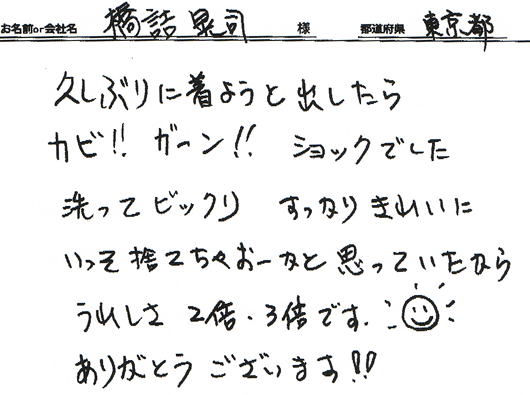 お名前or会社名 橋詰 晃司 様 都道府県 東京都
久しぶりに着ようと出したら
カビ!! ガーン!! ショックでした
洗ってビックリ すっかりきれいに
いっそ捨てちゃおーかと思っていたから
うれしさ 2倍・3倍です.
ありがとうございます!!